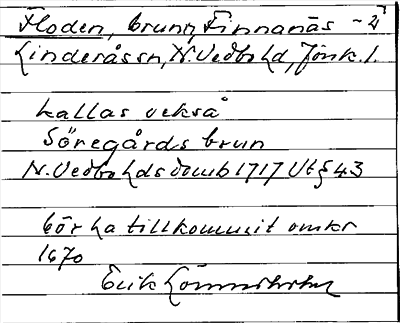 Floden, brunn, Finnanäs -2
Linderås sn, N. Vedbo hd, Jönk. l.
kallas också
Söregårds brun
N. Vedbo hds domb 1717 Vt § 43
bör ha tillkommit omkr
1670
Erik